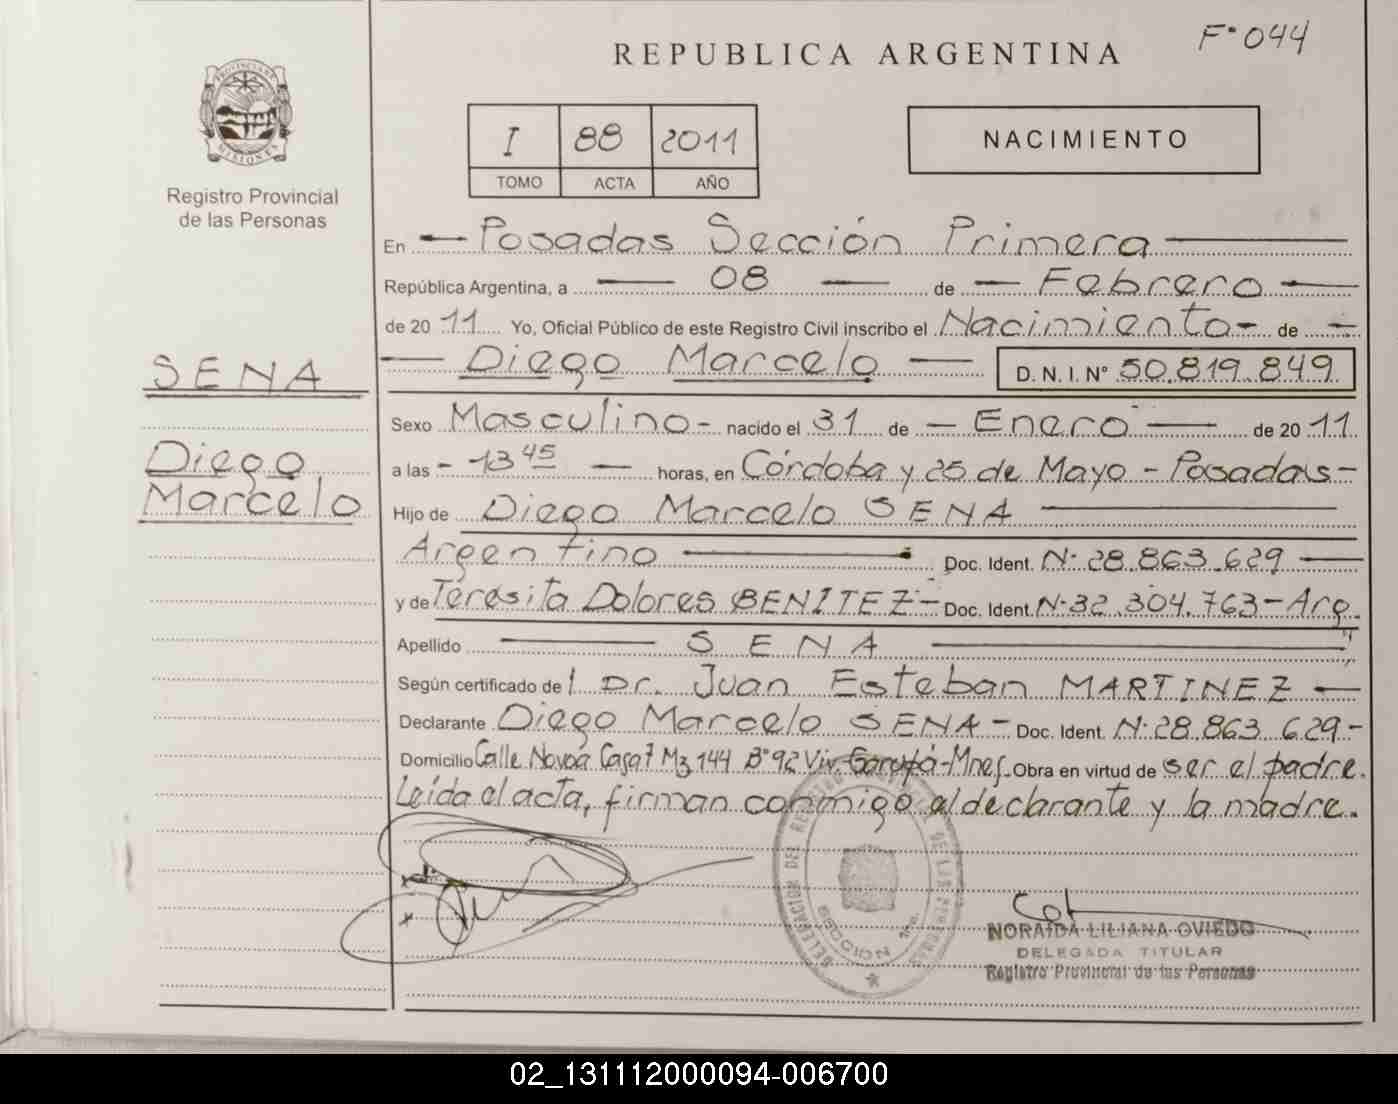 F° 044
REPUBLICA ARGENTINA
PROVINCIA DE MISIONES
Registro Provincial
de las Personas
I 88 2011
TOMO ACTA AÑO
NACIMIENTO
En Posadas Sección Primera
República Argentina, a 08 de Febrero
de 2011 Yo, Oficial Público de este Registro Civil inscribo el Nacimiento de
Diego Marcelo D. N. I. N° 50.819.849
SENA
Diego
Marcelo
Sexo Masculino nacido el 31 de Enero de 2011
a las 13 45 horas, en Córdoba y 25 de Mayo - Posadas
Hijo de Diego Marcelo SENA
Argentino Doc. Ident. N° 28.863.629
y de Teresita Dolores BENITEZ Doc. Ident. N° 32.304.763 - Arg.
Apellido SENA
Según certificado de l Dr. Juan Esteban MARTINEZ
Declarante Diego Marcelo SENA Doc. Ident. N° 28.863.629
Domicilio Calle Novoa Casa 7 Mz 144 B° 92 Viv. Garupá-Mnes. Obra en virtud de ser el padre.
Leída el acta, firman conmigo el declarante y la madre.
DELEGACION DEL REGISTRO DE LAS PERSONAS
SECCION 1ra.
NORAIDA LILIANA OVIEDO
DELEGADA TITULAR
Registro Provincial de las Personas
02_131112000094-006700